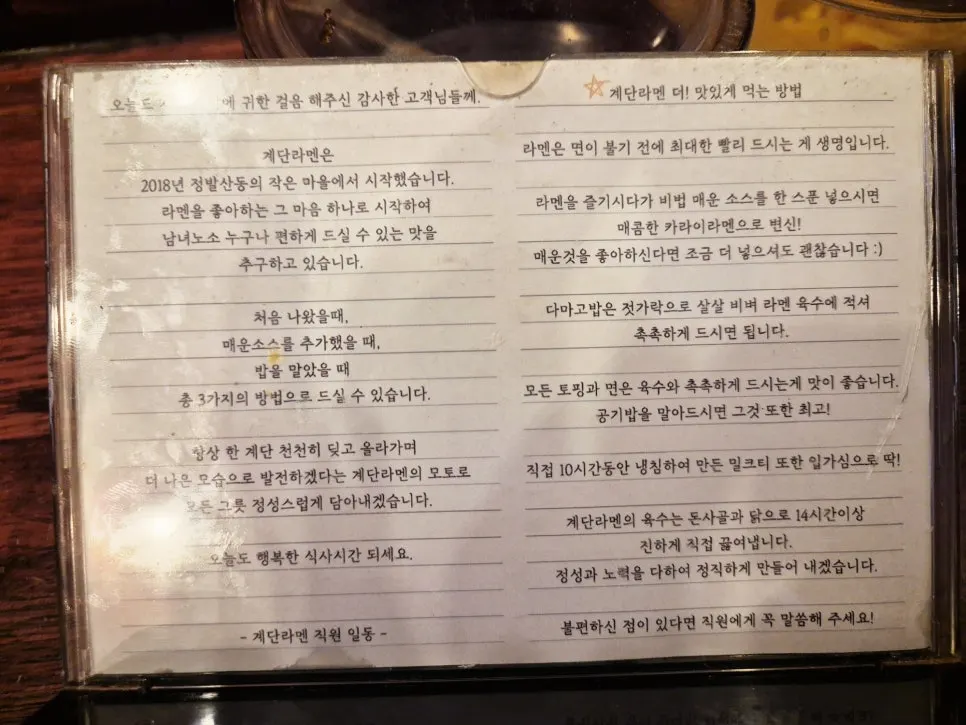 오늘도 에 귀한 걸음 해주신 감사한 고객님들께.
계단라멘은
2018년 정발산동의 작은 마을에서 시작했습니다.
라멘을 좋아하는 그 마음 하나로 시작하여
남녀노소 누구나 편하게 드실 수 있는 맛을
추구하고 있습니다.
처음 나왔을때,
매운소스를 추가했을 때,
밥을 말았을 때
총 3가지의 방법으로 드실 수 있습니다.
항상 한 계단 천천히 딛고 올라가며
더 나은 모습으로 발전하겠다는 계단라멘의 모토로
모든 그릇 정성스럽게 담아내겠습니다.
오늘도 행복한 식사시간 되세요.
- 계단라멘 직원 일동 -
계단라멘 더! 맛있게 먹는 방법
라멘은 면이 불기 전에 최대한 빨리 드시는 게 생명입니다.
라멘을 즐기시다가 비법 매운 소스를 한 스푼 넣으시면
매콤한 카라이라멘으로 변신!
매운것을 좋아하신다면 조금 더 넣으셔도 괜찮습니다 :)
다마고밥은 젓가락으로 살살 비벼 라멘 육수에 적셔
촉촉하게 드시면 됩니다.
모든 토핑과 면은 육수와 촉촉하게 드시는게 맛이 좋습니다.
공기밥을 말아드시면 그것 또한 최고!
직접 10시간동안 냉침하여 만든 밀크티 또한 입가심으로 딱!
계단라멘의 육수는 돈사골과 닭으로 14시간이상
진하게 직접 끓여냅니다.
정성과 노력을 다하여 정직하게 만들어 내겠습니다.
불편하신 점이 있다면 직원에게 꼭 말씀해 주세요!